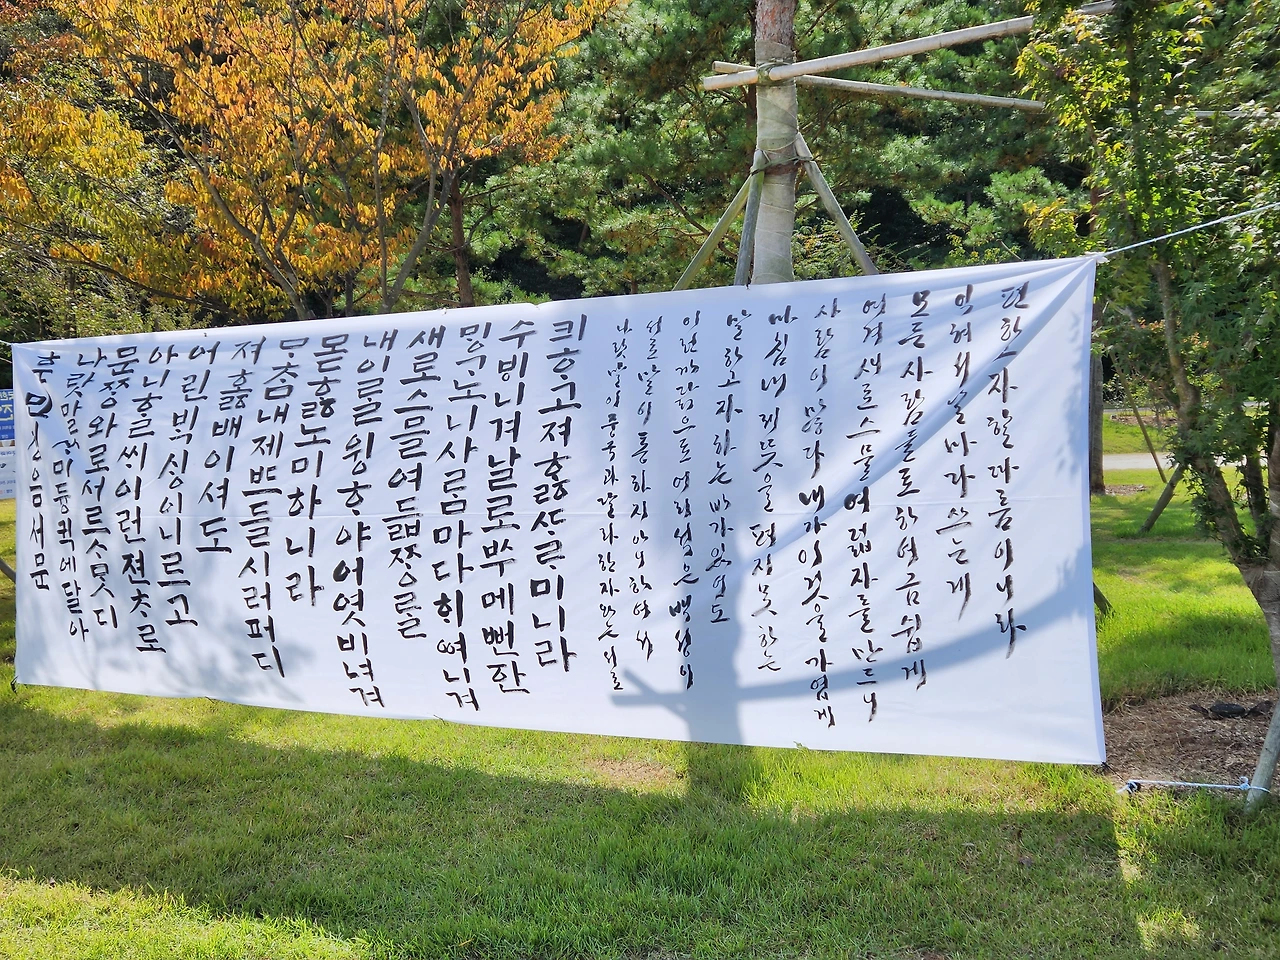 훈민정음서문
나랏말ᄊᆞ미듕귁에달아
문ᄍᆞᆼ와로서르ᄉᆞᄆᆞᆺ디
아니ᄒᆞᆯ씨이런젼ᄎᆞ로
어린ᄇᆡᆨ싱이니르고
져ᄒᆞᇙ배이셔도
ᄆᆞᄎᆞᆷ내제ᄠᅳ들시러펴디
몯ᄒᆞᇙ노미하니라
내이ᄅᆞᆯ윙ᄒᆞ야어엿비녀겨
새로스믈여듧ᄍᆞᆼᄅᆞᆯ
ᄆᆡᇰᄀᆞ노니사ᄅᆞᆷ마다ᄒᆡᅇᅧ니겨
수ᄫᅵ니겨날로ᄡᅮ메뻔한
킈ᄒᆞ고져ᄒᆞᇙᄯᆞᄅᆞ미니라
나랏말이중국과달라한자와는서로
서로말이통하지아니하여서
이런까닭으로어리석은백성이
말하고자하는바가있어도
마침내제뜻을펴지못하는
사람이많다내가이것을가엽게
여겨새로스물여덟자를만드니
모든사람들로하여금쉽게
익혀서날마다쓰는게
편하고자할다름이니라